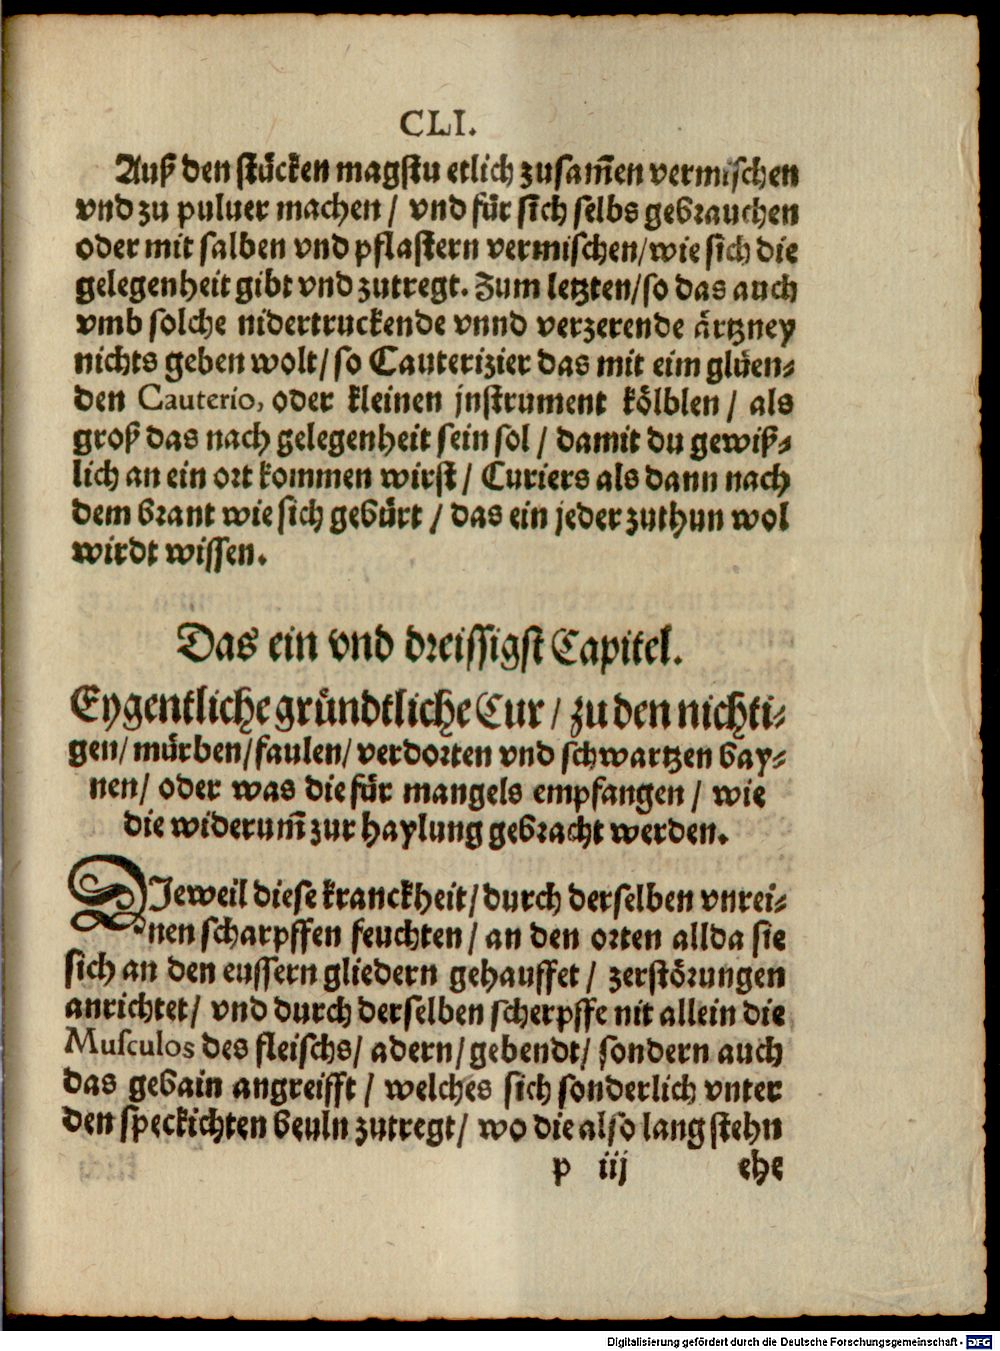 CLI.
Auß den stücken magstu etlich zusam̃en vermischen
vnd zu puluer machen / vnd für sich selbs gebrauchen
oder mit salben vnd pflastern vermischen/wie sich die
gelegenheit gibt vnd zutregt. Zum letzten/so das auch
vmb solche nidertruckende vnnd verzerende ärtzney
nichts geben wolt/so Cauterizier das mit eim glüen⸗
den Cauterio, oder kleinen jnstrument kölblen / als
groß das nach gelegenheit sein sol / damit du gewiß⸗
lich an ein ort kommen wirst / Curiers als dann nach
dem brant wie sich gebürt / das ein jeder zuthun wol
wirdt wissen.
Das ein vnd dreissigst Capitel.
Eygentliche gründtliche Cur / zu den nichti⸗
gen/ mürben/faulen/ verdorten vnd schwartzen bay⸗
nen/ oder was die für mangels empfangen / wie
die widerum̃ zur haylung gebracht werden.
DJeweil diese kranckheit/durch derselben vnrei⸗
nen scharpffen feuchten / an den orten allda sie
sich an den eussern gliedern gehauffet / zerstörungen
anrichtet/ vnd durch derselben scherpffe nit allein die
Musculos des fleischs/ adern/gebendt/ sondern auch
das gebain angreifft / welches sich sonderlich vnter
den speckichten beuln zutregt/ wo die also lang stehn
p iij ehe
Digitalisierung gefördert durch die Deutsche Forschungsgemeinschaft - DFG